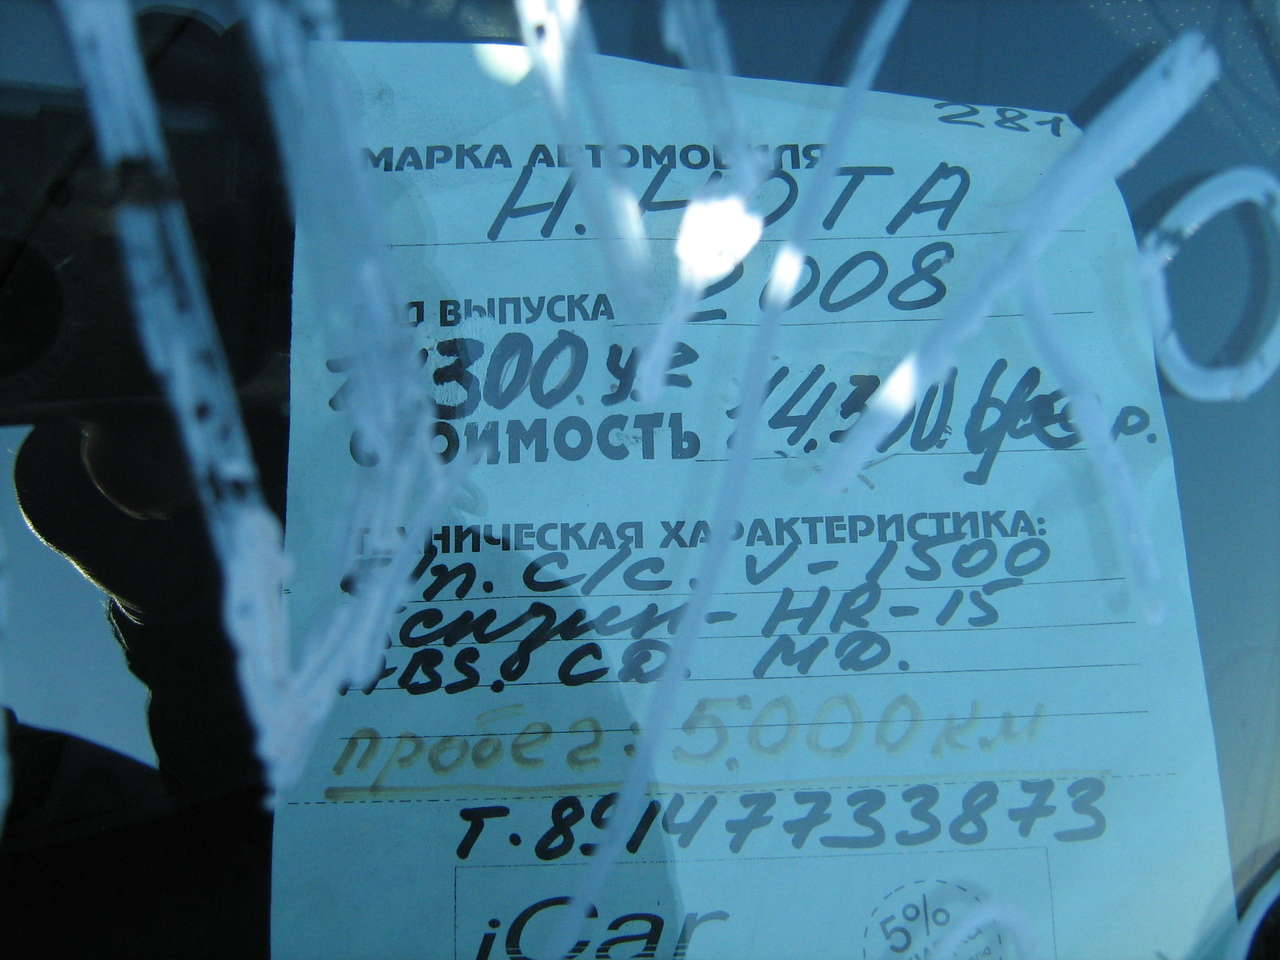 281
МАРКА АВТОМОБИЛЯ
Н. НОТА
ГОД ВЫПУСКА 2008
300. уг
СТОИМОСТЬ 14.300. р.
ТЕХНИЧЕСКАЯ ХАРАКТЕРИСТИКА:
б/п. с/с. V-1500
бензин-HR-15
ABS. CD. MD.
пробег: 5.000 км
Т. 89147733873
iCar
5%